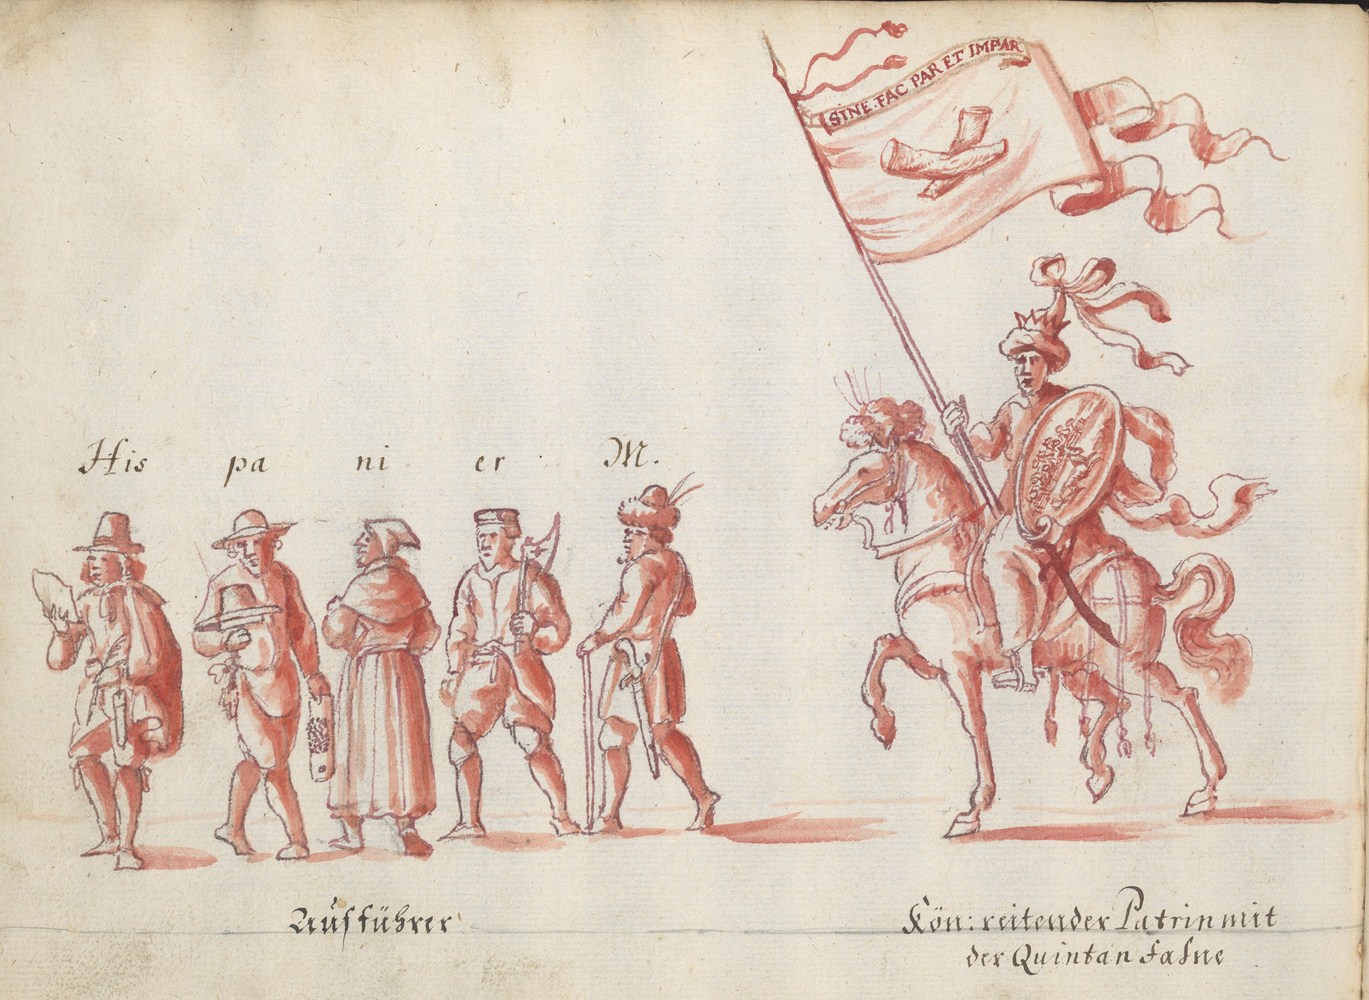 SINE. FAC PAR ET IMPAR
His pa ni er M.
Aufführer
Kön: reitender Patrin mit
der Quintan Fahne